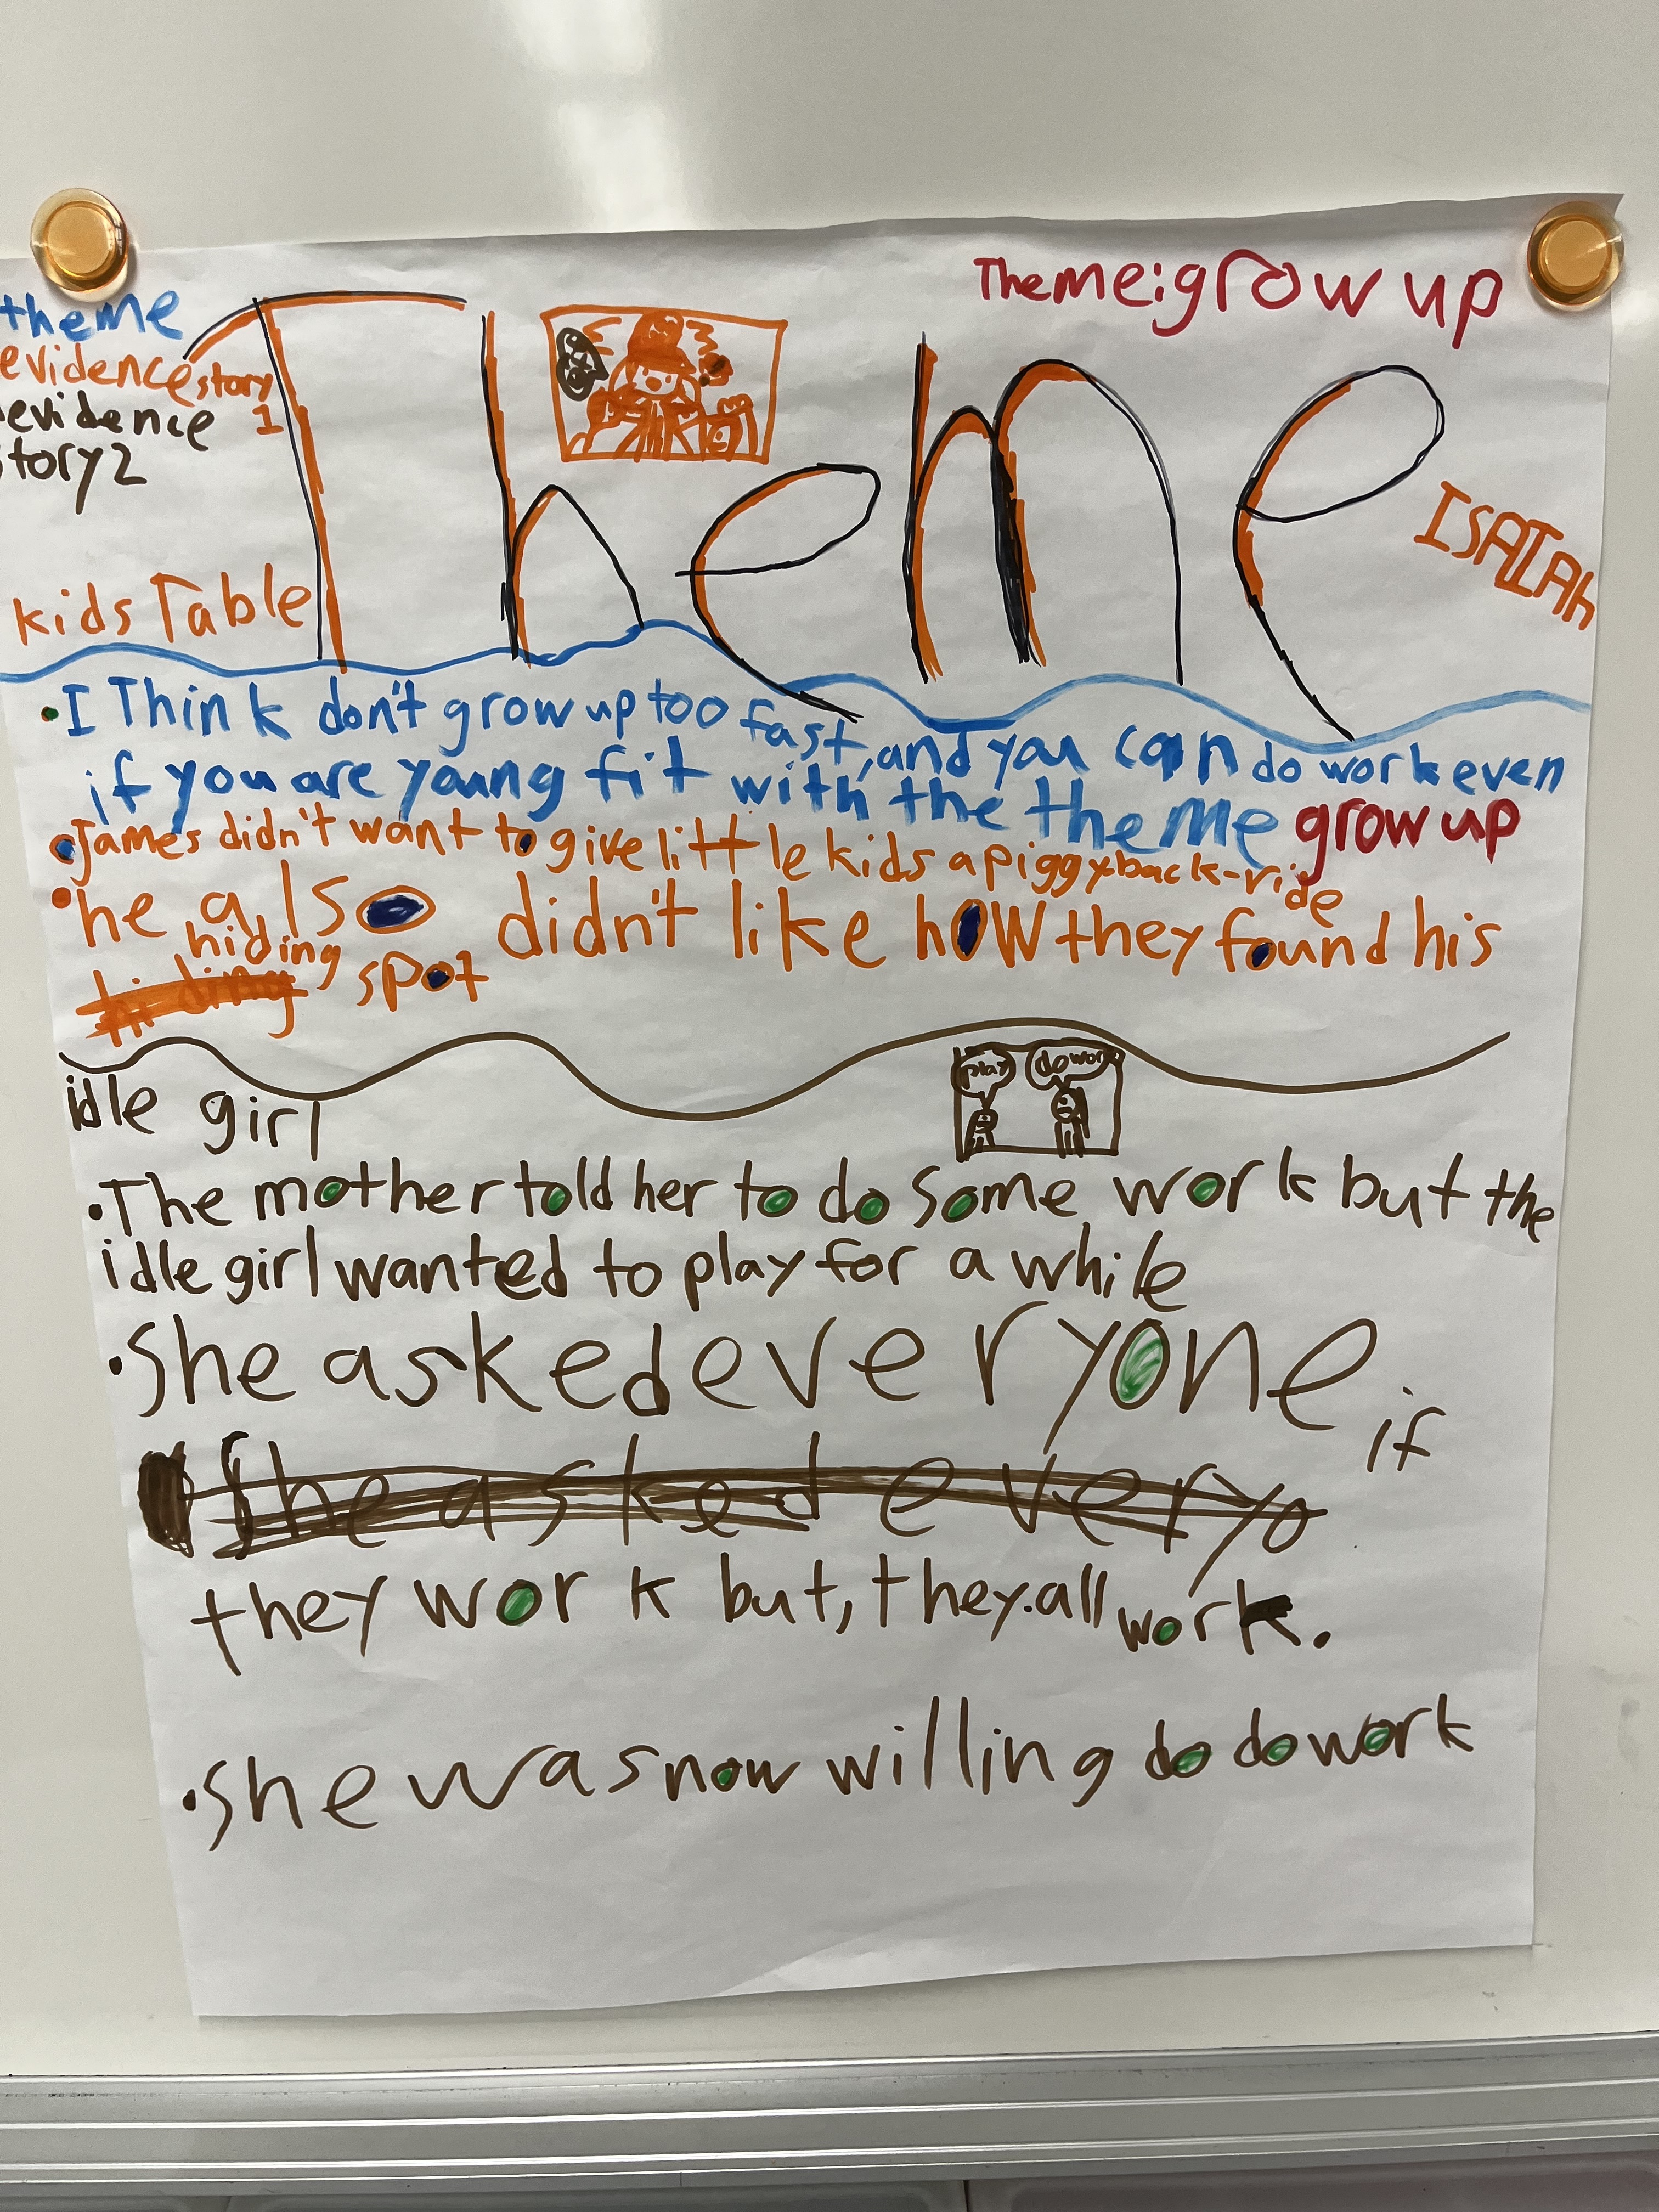 Theme: grow up
theme
evidence story 1
evidence
story 2
Theme
ISAIAh
kids Table
• I Think don't grow up too fast, and you can do work even
if you are young fit with the theme grow up
• James didn't want to give little kids a piggyback-ride
• he also didn't like how they found his
hiding spot
idle girl
play
do work
• The mother told her to do some work but the
idle girl wanted to play for a while
• She asked everyone if
She asked everyo
they work but, they all work.
• She was now willing do do work